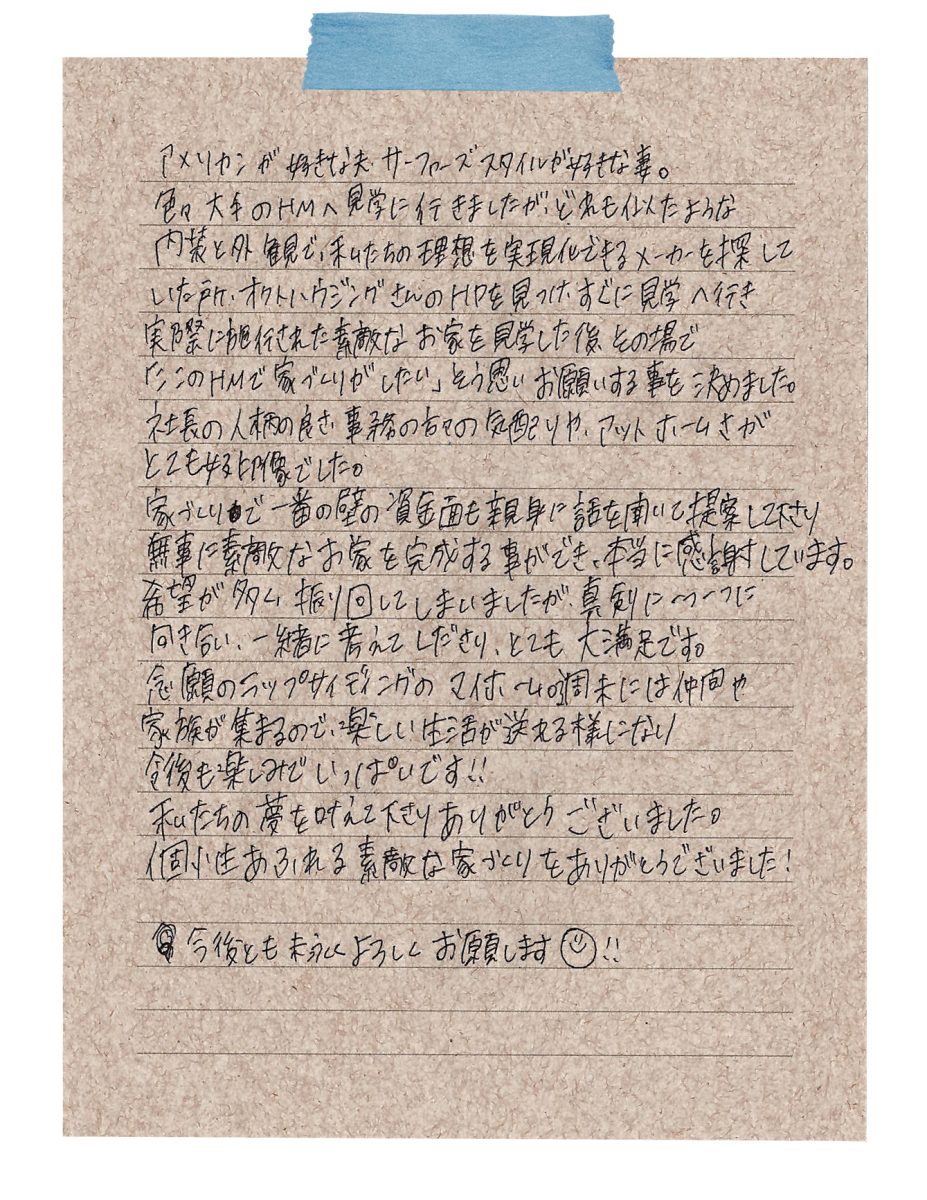 アメリカンが好きな夫、サーファーズスタイルが好きな妻。
色々大手のHMへ見学に行きましたが、どれも似たような
内装と外観で、私たちの理想を実現化できるメーカーを探して
いた所、オクトハウジングさんのHPを見つけ、すぐに見学へ行き
実際に施行された素敵なお家を見学した後、その場で
「ここのHMで家づくりがしたい」そう思いお願いする事を決めました。
社長の人柄の良さ、事務の方々の気配りや、アットホームさが
とても好印象でした。
家づくりで一番の壁の資金面も親身に話を聞いて提案して下さり
無事に素敵なお家を完成する事ができ、本当に感謝しています。
希望が多く、振り回してしまいましたが、真剣に一つ一つに
向き合い、一緒に考えてくださり、とても大満足です。
念願のラップサイディングのマイホーム。週末には仲間や
家族が集まるので、楽しい生活が送れる様になり
今後も楽しみでいっぱいです!!
私たちの夢を叶えて下さりありがとうございました。
個性あふれる素敵な家づくりをありがとうございました!
今後とも末永くよろしくお願します!!